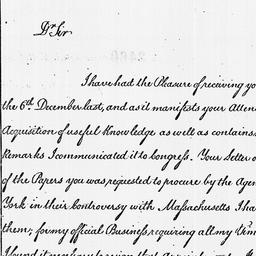 Dr Sir
I have had the Pleasure of receiving
the 6th December last, and as it manifests your
Acquisition of useful Knowledge as well as contains
Remarks I communicated it to Congress. Your Letter
of the Papers you was requested to procure by the
York in their Controversy with Massachusetts I
them; for my official Business requiring all my